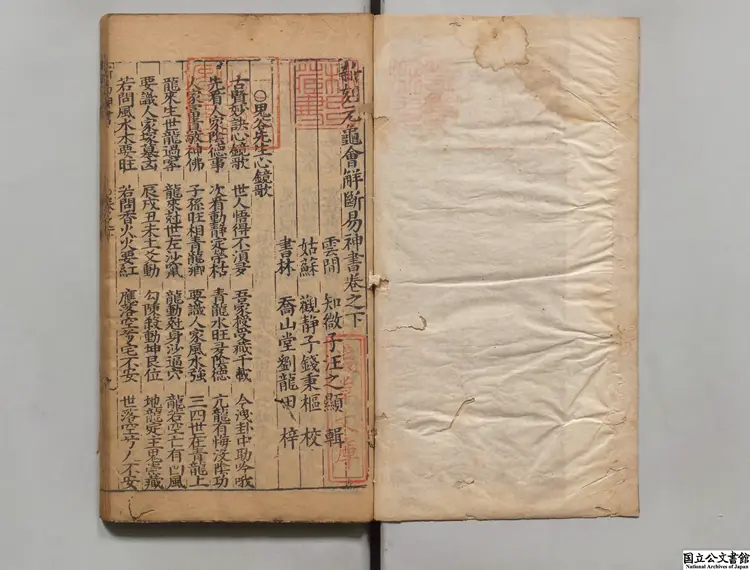 新刻元龜會解斷易神書卷之下
雲間 知微子汪之顯 輯
姑蘇 觀靜子錢秉樞 校
書林 喬山堂劉龍田 梓
○鬼谷先生心鏡歌
古賢妙訣心鏡歌 世人悟得不須多 吾家授受藏千載 今洩卦中助吟哦
先看人家陰德事 次看動靜定榮枯 青龍水旺多陰德 亢龍有悔沒陰功
人家富貴敬神佛 子孫旺相青龍鄉 要識人家風水強 三四世在青龍上
龍來生世龍過案 龍來尅世左沙竄 龍動尅身沙逼穴 龍若空亡有凹風
要識人家墳墓凶 辰戌丑未土爻動 勾陳發動坤艮位 地龍定主
若問風水水要旺 若問香火火要紅 應落空亡宅不安 世落空亡人不安
藏書
國立公文書館
National Archives of Japan